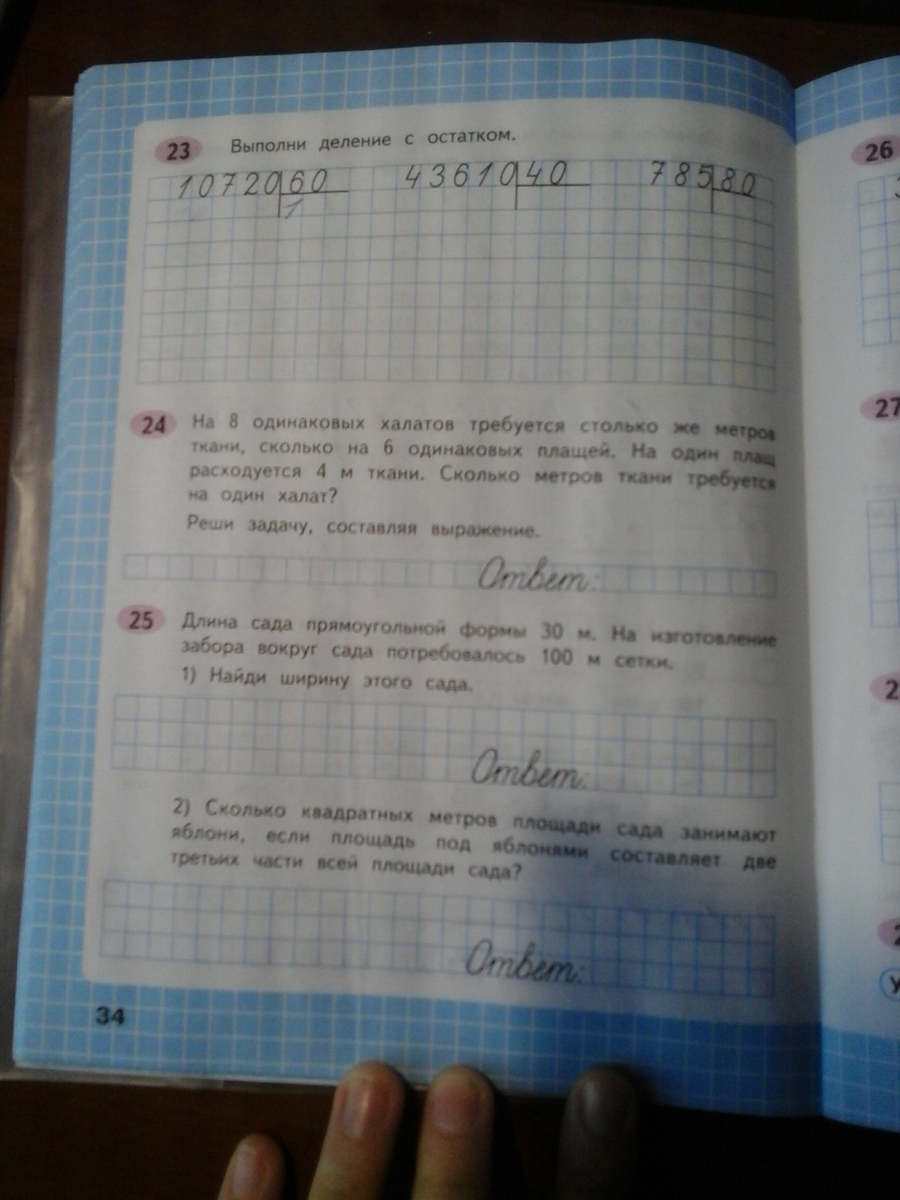 23 Выполни деление с остатком.
10720 60 43610 40 785 80
1
24 На 8 одинаковых халатов требуется столько же метров
ткани, сколько на 6 одинаковых плащей. На один плащ
расходуется 4 м ткани. Сколько метров ткани требуется
на один халат?
Реши задачу, составляя выражение.
Ответ:
25 Длина сада прямоугольной формы 30 м. На изготовление
забора вокруг сада потребовалось 100 м сетки.
1) Найди ширину этого сада.
Ответ:
2) Сколько квадратных метров площади сада занимают
яблони, если площадь под яблонями составляет две
третьих части всей площади сада?
Ответ:
34
26
27